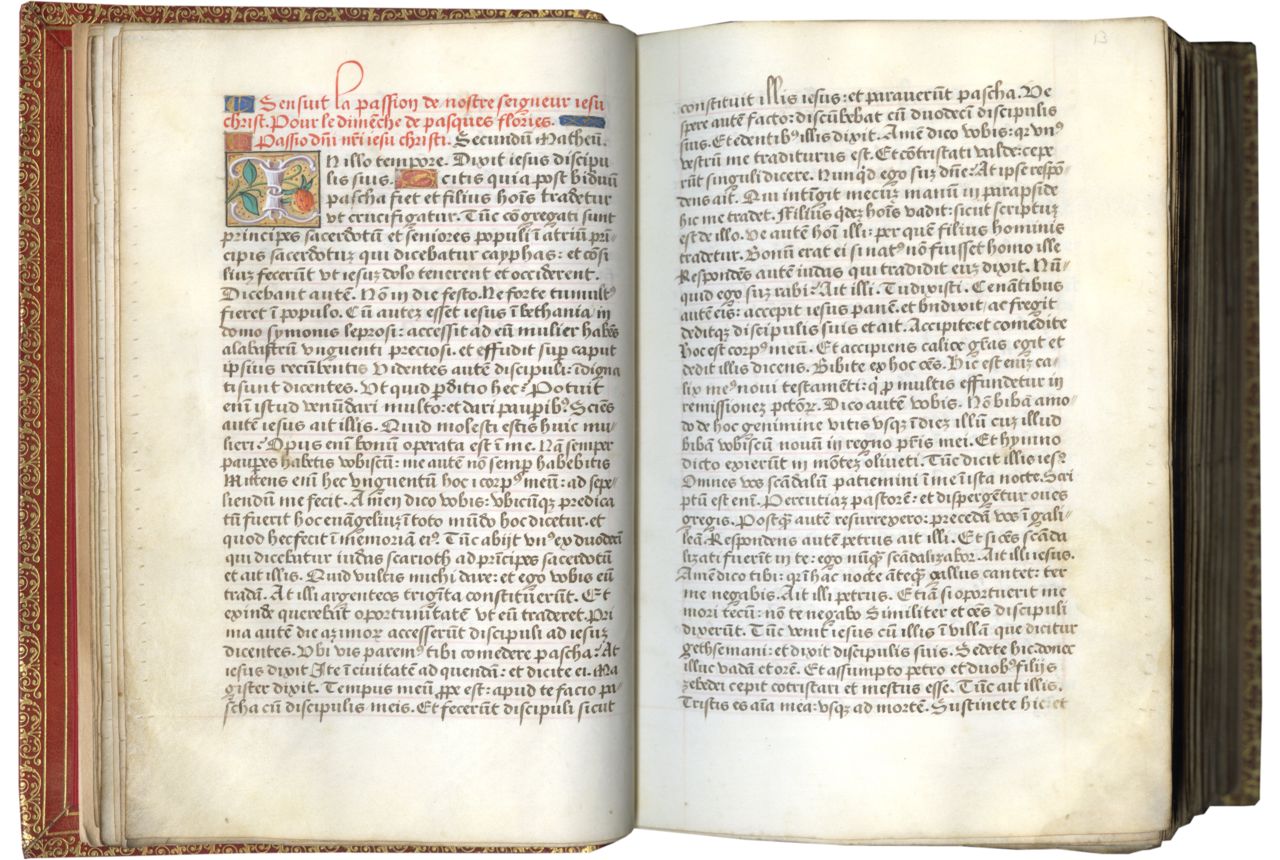 Sensuit la passion de nostre seigneur iesu
christ. Pour le dimẽche de pasques flories.
Passio dñi nr̃i iesu christi. Secundũ Matheũ.
In illo tempore. Dixit iesus discipu
lis suis. Scitis quia post biduũ
pascha fiet et filius hoĩs tradetur
vt crucifigatur. Tũc cõgregati sunt
principes sacerdotũ et seniores populi ĩ atriũ prĩ-
cipis sacerdotuz qui dicebatur cayphas: et cõsi
liuz fecerũt vt iesuz dolo tenerent et occiderent.
Dicebant autẽ. Nõ in die festo. Ne forte tumultꝰ
fieret ĩ populo. Cũ autez esset iesus ĩ bethania in
domo symonis leprosi: accessit ad eũ mulier habẽs
alabastrũ vnguenti preciosi. et effudit sup̱ caput
ipsius recũbentis videntes autẽ discipuli: ĩdigna
ti sunt dicentes. Vt quid p̱ditio hec? Potuit
enĩ istud venũdari multo: et dari paupibꝰ. Sciẽs
autẽ iesus ait illis. Quid molesti estis huic mu-
lieri? Opus enĩ bonũ operata est ĩ me. Nã semper
paup̱es habetis vobiscũ: me autẽ nõ semp̱ habebitis
Mittens enĩ hec vnguentũ hoc ĩ corpꝰ meũ: ad sepe-
liendũ me fecit. Amen dico vobis: vbicũqz predica
tũ fuerit hoc euãgeliuz ĩ toto mũdo hoc dicetur. et
quod hec fecit ĩ memoriã eiꝰ. Tũc abijt vnꝰ ex duodecĩ
qui dicebatur iudas scarioth ad prĩcipes sacerdotũ
et ait illis. Quid vultis michi dare: et ego vobis eũ
tradã. At illi argenteos trigĩta constitũerũt. Et
exinde querebãt oportunitatẽ vt eũ traderet. Pri
ma autẽ die azimoꝝ accesserũt discipuli ad iesuz
dicentes. Vbi vis paremꝰ tibi comedere pascha? At
iesus dixit Ite ĩ ciuitatẽ ad quendã: et dicite ei. Ma
gister dixit. Tempus meũ p̱pe est: apud te facio pa-
scha cũ discipulis meis. Et fecerũt discipuli sicut
13
constituit illis iesus: et parauerũt pascha. Ve
spere autẽ facto: discũbebat cũ duodecĩ discipulis
suis. Et edentibꝰ illis dixit. Amẽ dico vobis: qz vnꝰ
vestrũ me traditurus est. Et cõtristati valde: cepe
rũt singuli dicere. Nunqd ego suz dñe? At ipse respõ-
dens ait. Qui intĩgit mecuz manũ in parapside
hic me tradet. Filius qdez hoĩs vadit: sicut scriptuz
est de illo. Ve autẽ hoĩ illi: per quẽ filius hominis
tradetur. Bonũ erat ei si natꝰ nõ fuisset homo ille
Respondẽs autẽ iudas qui tradidit euz dixit. Nũ-
quid ego suz rabi? Ait illi. Tu dixisti. Cenãtibus
autẽ eis: accepit iesus panẽ. et bñdixit ac fregit
deditqz discipulis suis et ait. Accipite: et comedite
hoc est corpꝰ meũ. Et accipiens calicẽ gr̃as egit et
dedit illis dicens. Bibite ex hoc oẽs. Hic est enĩz ca-
lix meꝰ noui testamẽti: q̇ p̱ multis effundetur in
remissionez pctõꝝ. Dico autẽ vobis. Nõ bibã amo-
do de hoc genimine vitis vsqz ĩ diez illũ cuz illud
bibã vobiscũ nouũ in regno pr̃is mei. Et hymno
dicto exierũt in mõtez oliueti. Tũc dicit illis iesꝰ
Omnes vos scãdalũ patiemini ĩ me ĩ ista nocte. Scri
ptũ est enĩ. Percutiaz pastorẽ: et dispergẽtur oues
gregis. Postq̃ autẽ resurrexero: precedã vos ĩ gali-
leã. Respondens autẽ petrus ait illi. Et si oẽs scãda
lizati fuerĩt in te: ego nũq̃ scãdalizabor. Ait illi iesus.
Amẽ dico tibi: q̃ ĩ hac nocte ãteq̃ gallus cantet: ter
me negabis. Ait illi petrus. Etiã si oportuerit me
mori tecũ: nõ te negabo Similiter et oẽs discipuli
dixerũt. Tũc venit iesus cũ illis ĩ villã que dicitur
gethsemani: et dixit discipulis suis. Sedete hic. donec
illuc vadã et orẽ. Et assumpto petro et duobꝰ filijs
zebedei cepit cõtristari et mestus esse. Tũc ait illis.
Tristis es aĩa mea: vsqz ad mortẽ. Sustinete hic. et